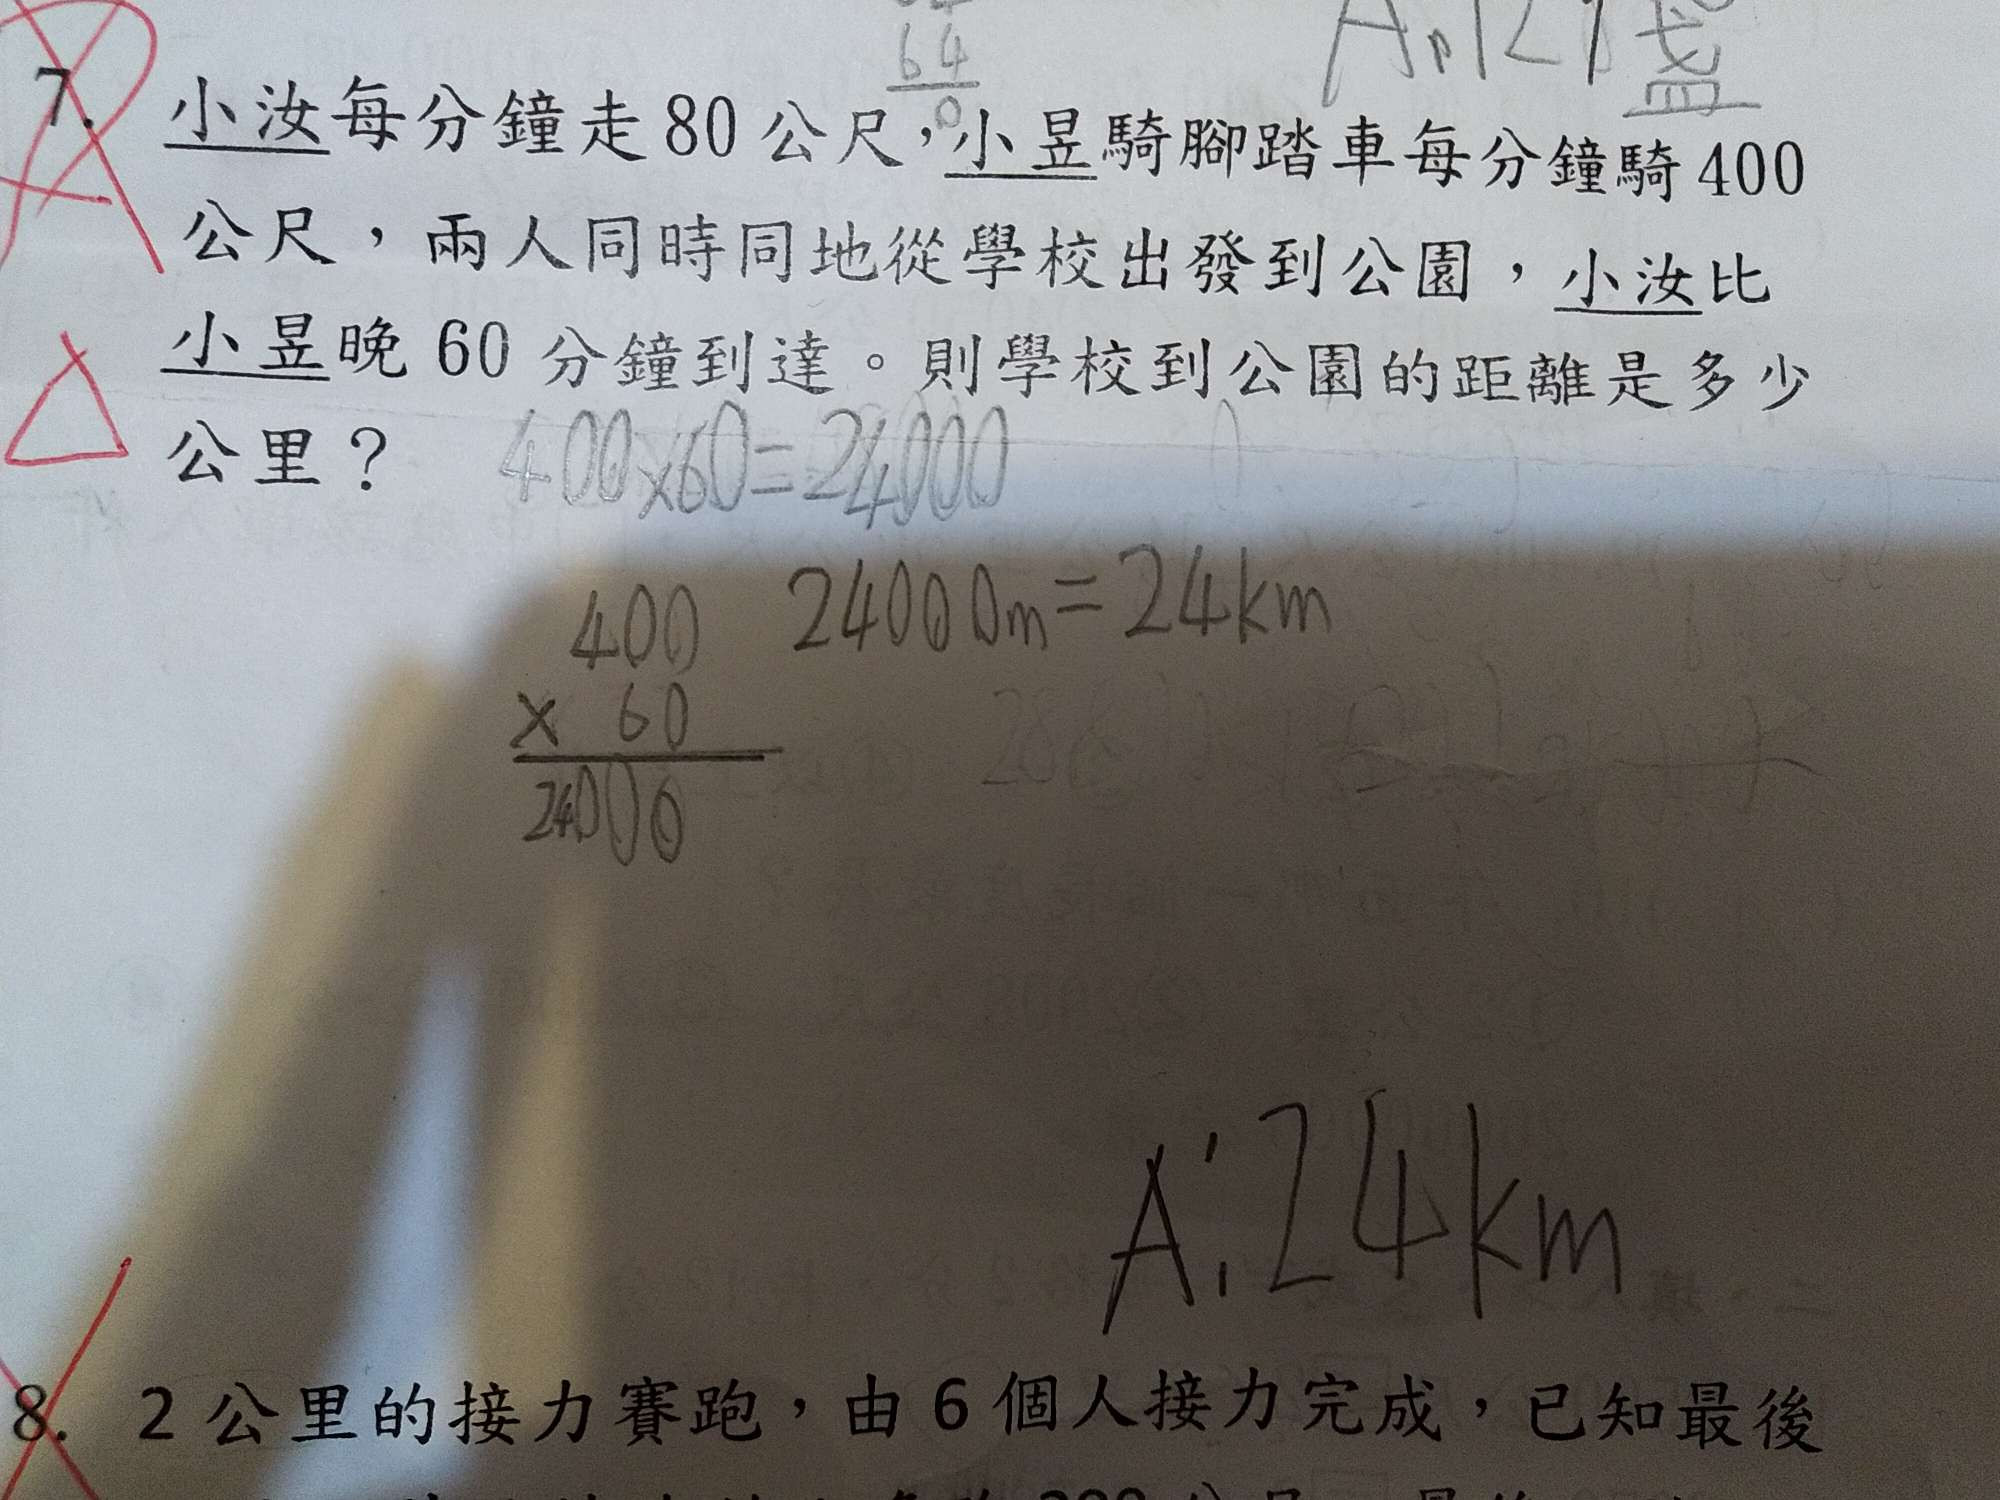 64
0
A:12 盞
7. 小汝每分鐘走80公尺,小昱騎腳踏車每分鐘騎400
公尺,兩人同時同地從學校出發到公園,小汝比
小昱晚 60 分鐘到達。則學校到公園的距離是多少
公里?
400×60=24000
400
24000m=24km
× 60
24000
A:24km
8. 2公里的接力賽跑,由6個人接力完成,已知最後